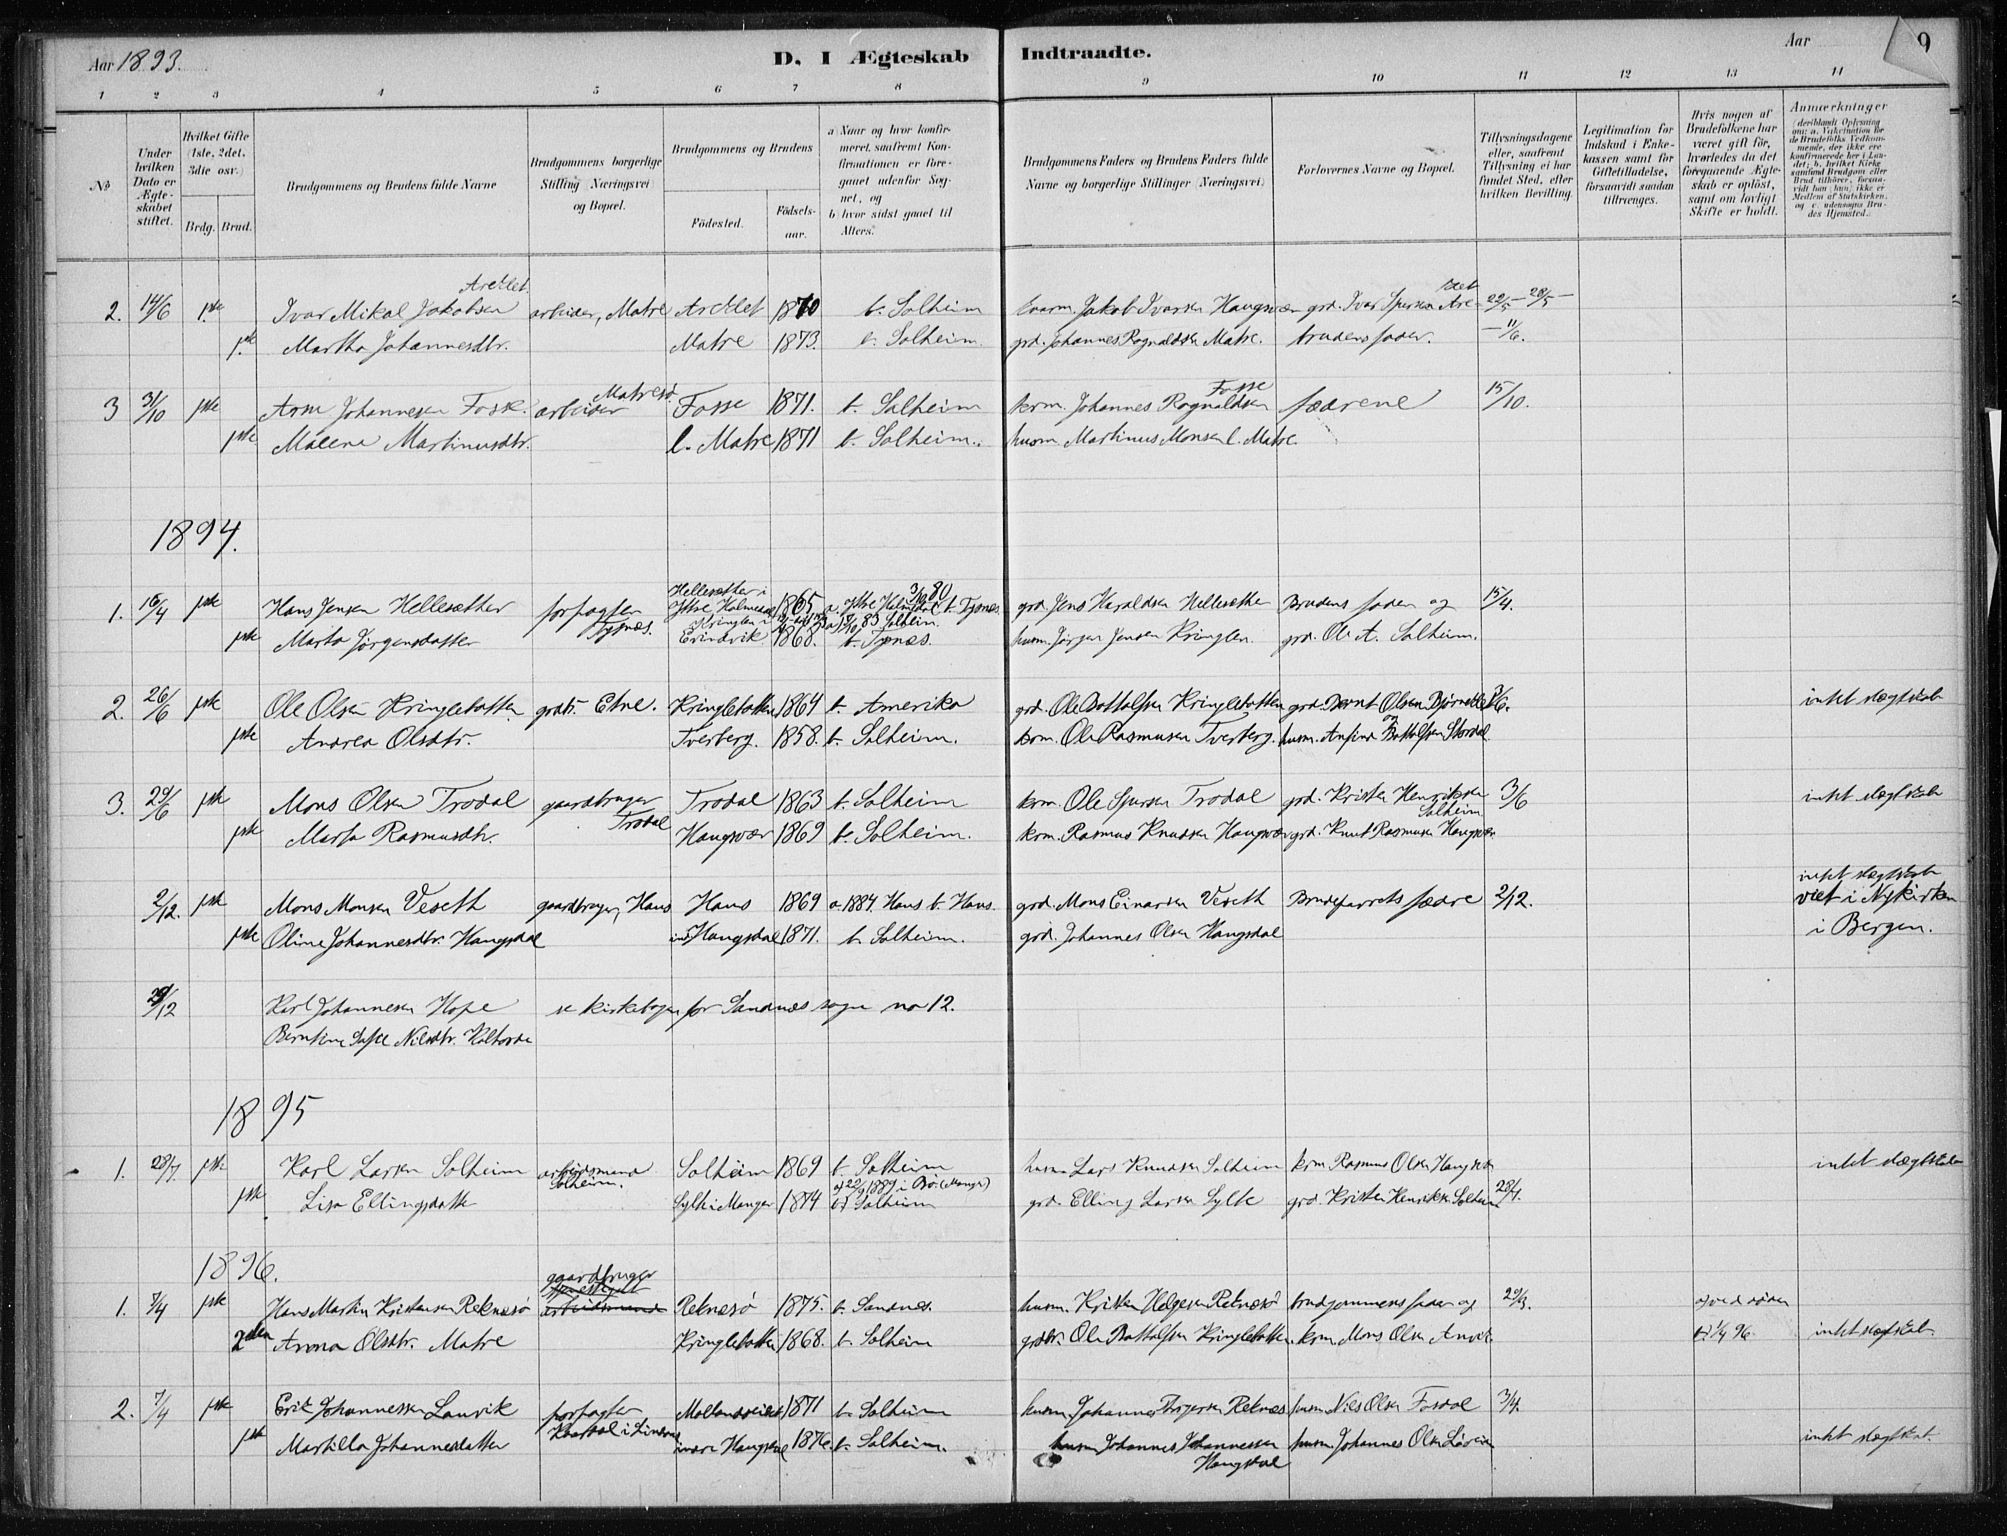 Aar 1893.
D. I Ægteskab Indtraadte.
Aar
9
1 2 3 4 5 6 7 8 9 10 11 12 13 14
No
Under hvilken Dato er Ægteskabet stiftet.
Hvilket Gifte (1ste, 2det, 3die osv.)
Brdg. Brud.
Brudgommens og Brudens fulde Navne
Brudgommens borgerlige Stilling (Næringsvei) og Bopæl.
Brudgommens og Brudens
Födested.
Födsels-aar.
a) Naar og hvor konfirmeret, saafremt Konfirmationen er foregaaet udenfor Sognet, og
b) hvor sidst gaaet til Alters.
Brudgommens Faders og Brudens Faders fulde Navne og borgerlige Stillinger (Næringsvei)
Forlovernes Navne og Bopæl.
Tillysningsdagene eller, saafremt Tillysning ei har fundet Sted, efter hvilken Bevilling.
Legitimation for Indskud i Enkekassen samt for Giftetilladelse, forsaavidt saadan tiltrænges.
Hvis nogen af Brudefolkene har været gift för, hvorledes da det foregaaende Ægteskab er oplöst, samt om lovligt Skifte er holdt.
Anmærkninger (deriblandt Oplysning om: a. Vakcination for de Brudefolks Vedkommende, der ikke ere konfirmerede her i Landet; b. hvilket Kirkesamfund Brudgom eller Brud tilhörer, forsaavidt han (hun) ikke er Medlem af Statskirken, og c. udensogns Brudes Hjemsted.
2. 14/6 1ste Ivar Mikal Jakobsen arbeider, Matre 1870 b. Solheim Jakob Ivarsen Haugsvær grd. Ivar Sjursen 22/5 - 28/5 -
1ste Martha Johannesdtr. Matre 1873. b. Solheim. grd. Johannes Rognaldsen Matre. brudens fader. - 11/6.
3 31/10 1ste Johannesen Fosse. arbeider Matresø. Fosse 1871. b. Solheim krm. Johannes Rognaldsen Fosse fædrene 15/10.
1ste Malene Martinusdtr. l. Matre 1871 b. Solheim. husm. Martinus Monsen l. Matre
1894.
1. 16/4 1ste Hans Jensen Hellesæther forpagter Tysnes. Hellesæther i Ytre Holmedal 1865 a. Ytre Holmedal 3/10 80 b. Tysnes. grd. Jens Haraldsen Hellesæther Brudens fader og 15/4.
1ste Marta Jørgensdatter Kringlen i Evindvik 1868. 83 Solheim. b. Tysnes. husm. Jørgen Jensen Kringlen. grd. Ole A. Solheim.
2. 26/6 1ste Ole Olsen Kringlebotten grdbr. Etne. Kringlebotten 1864 b. Amerika grd. Ole Bottolfsen Kringlebotten grd. Bernt Olsen inkt slægtskab
1ste Andrea Olsdtr. Tverberg. 1858. b. Solheim. krm. Ole Rasmusen Tverberg. husm. Anfind Bottolfsen Stordal.
3. 29/6 1ste Mons Olsen Trodal gaardbruger Trodal Trodal 1863 b. Solheim krm. Ole Sjursen Trodal grd. Kristen Henriksen Solheim 3/6 inkt slægtskab
1ste Marta Rasmusdtr. Haugsvær 1869 b. Solheim. krm. Rasmus Knudsen Haugsvær grd. Knut Rasmusen Haugsvær
2/12. 1ste Mons Monsen Veseth gaardbruger, Haus Haus 1869 a. 1884 Haus b. Haus. grd. Mons Einarsen Veseth Brudeparrets fædre 2/12. inkt slægtskab viet i Nykirken
1ste Oline Johannesdtr. Haugsdal indr Haugsdal 1871. b. Solheim. grd. Johannes Olsen Haugsdal i Bergen.
29/12 Karl Johannesen Hope se kirkebogen for Sandnes sogn no 12.
Berntine Nilsdtr.
1895
1. 28/7. 1ste Karl Larsen Solheim arbeidsmand Solheim. Solheim 1869 b. Solheim husm. Lars Knudsen Solheim krm. Rasmus Olsen Haugsvær inkt slægtskab
1ste Lisa Ellingsdatter Sylte i Manger 1874 a) 22/9 1889 i Bø (Manger) b) Solheim grd. Elling Larsen Sylte grd. Kristen Henriksen Solheim 28/7.
1896.
1. 7/4 1ste Hans Martin Kristensen Reknesø gaardbruger arbeidsmand Reknesø 1875. b. Sandnes. husm. Kristen Helgesen Reknesø brudgommens fader og 29/3. a) ved døden
2den Anna Olsdtr. Matre Kringlebotten 1868. b. Solheim grdbr. Ole Bottolfsen Kringlebotten. krm. Mons Olsen b) 1/4 96. inkt slægtskab
2. 7/4 1ste Erik Johannessen Lauvik forpagter 1871 b. Solheim husm. Johannes Reknes husm. Nils Olsen Fosdal 3/4.
1ste Martilla Johannesdatter indre Haugsdal 1876. b. Solheim. husm. Johannes Johannessen Haugsdal husm. Johannes Olsen inkt slægtskab.